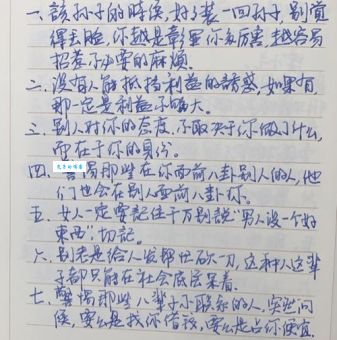 一、該孙子的時候，好多装一回孙子，别觉
得丢脸，你越是彰显你多厉害，越容易
招惹不必要的麻烦。
二、没有人能抵挡利益的誘惑，如果有
那一定是利益不够大。
三、别人对你的态度，不取决于你做了什么，
而在于你的身份。
四、警惕那些在你面前八卦别人的人，他
们也会在别人面前八卦你。
五、女人一定要記住千万别說"男人没一个好
東西"切記。
六、别老是给人发帮忙砍一刀，这种人这辈
子都只能在社会底层呆着。
七、警惕那些八辈子不联系的人，突然问
候，要么是找你借钱，要么是占你便宜。